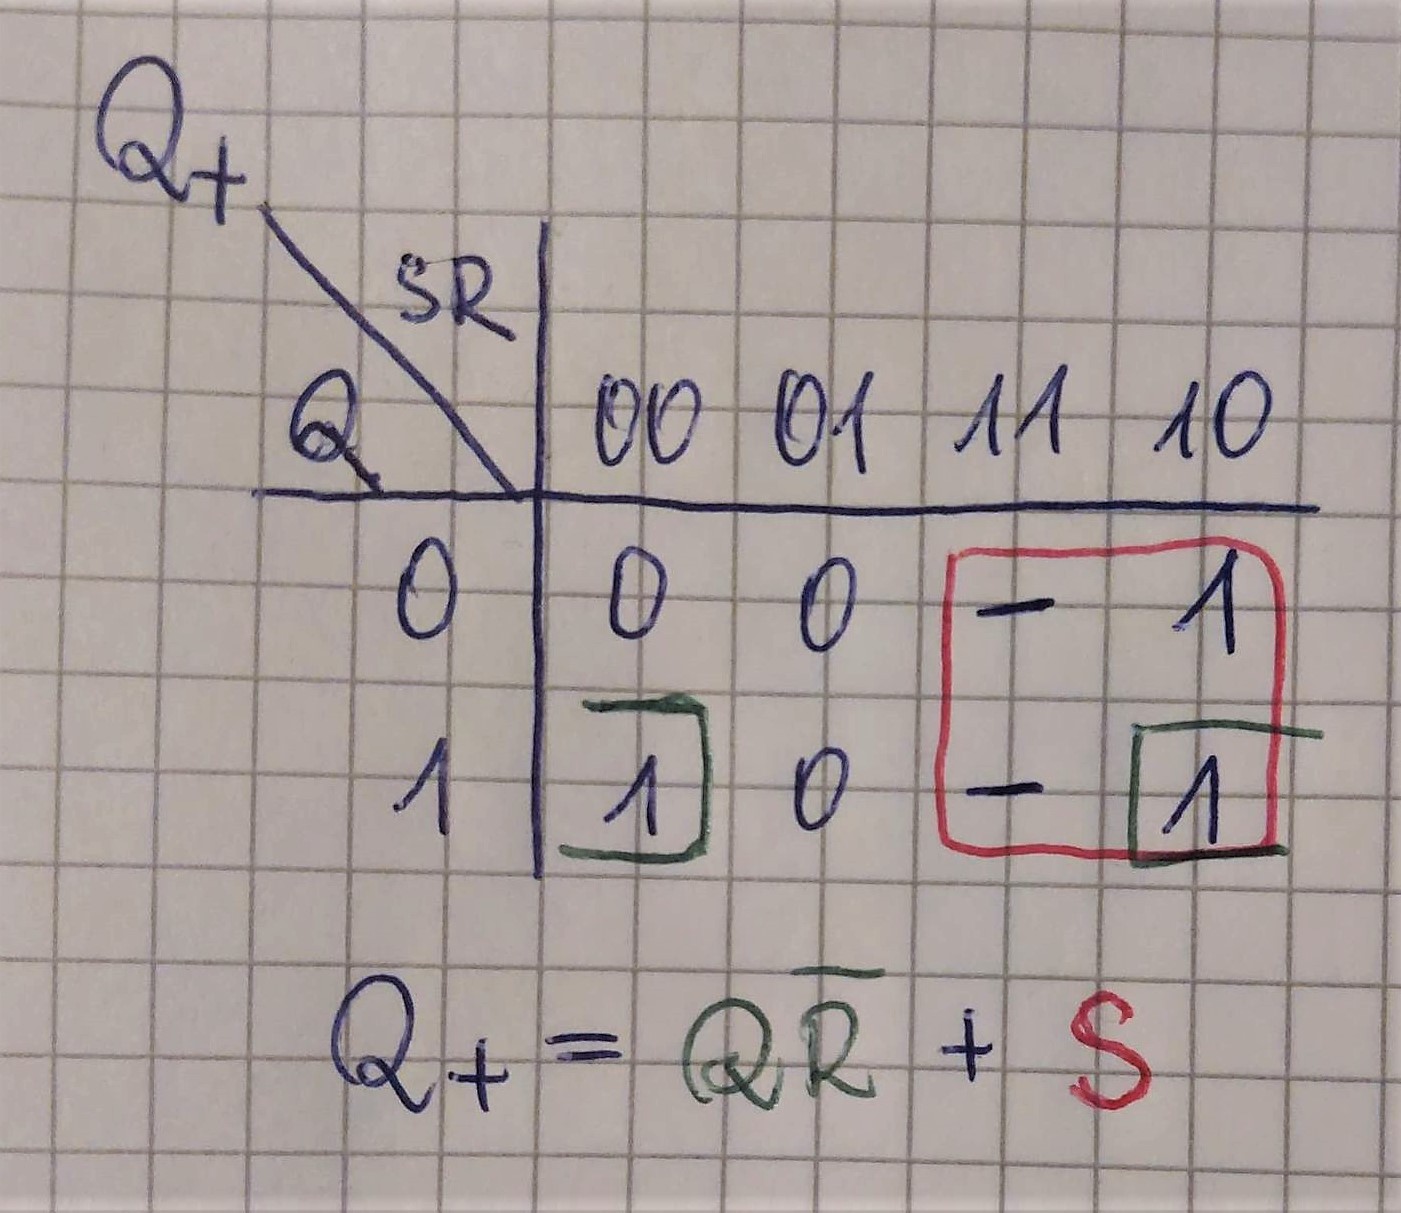 Q+
SR
Q 00 01 11 10
0 0 0 - 1
1 1 0 - 1
Q+ = QR̅ + S